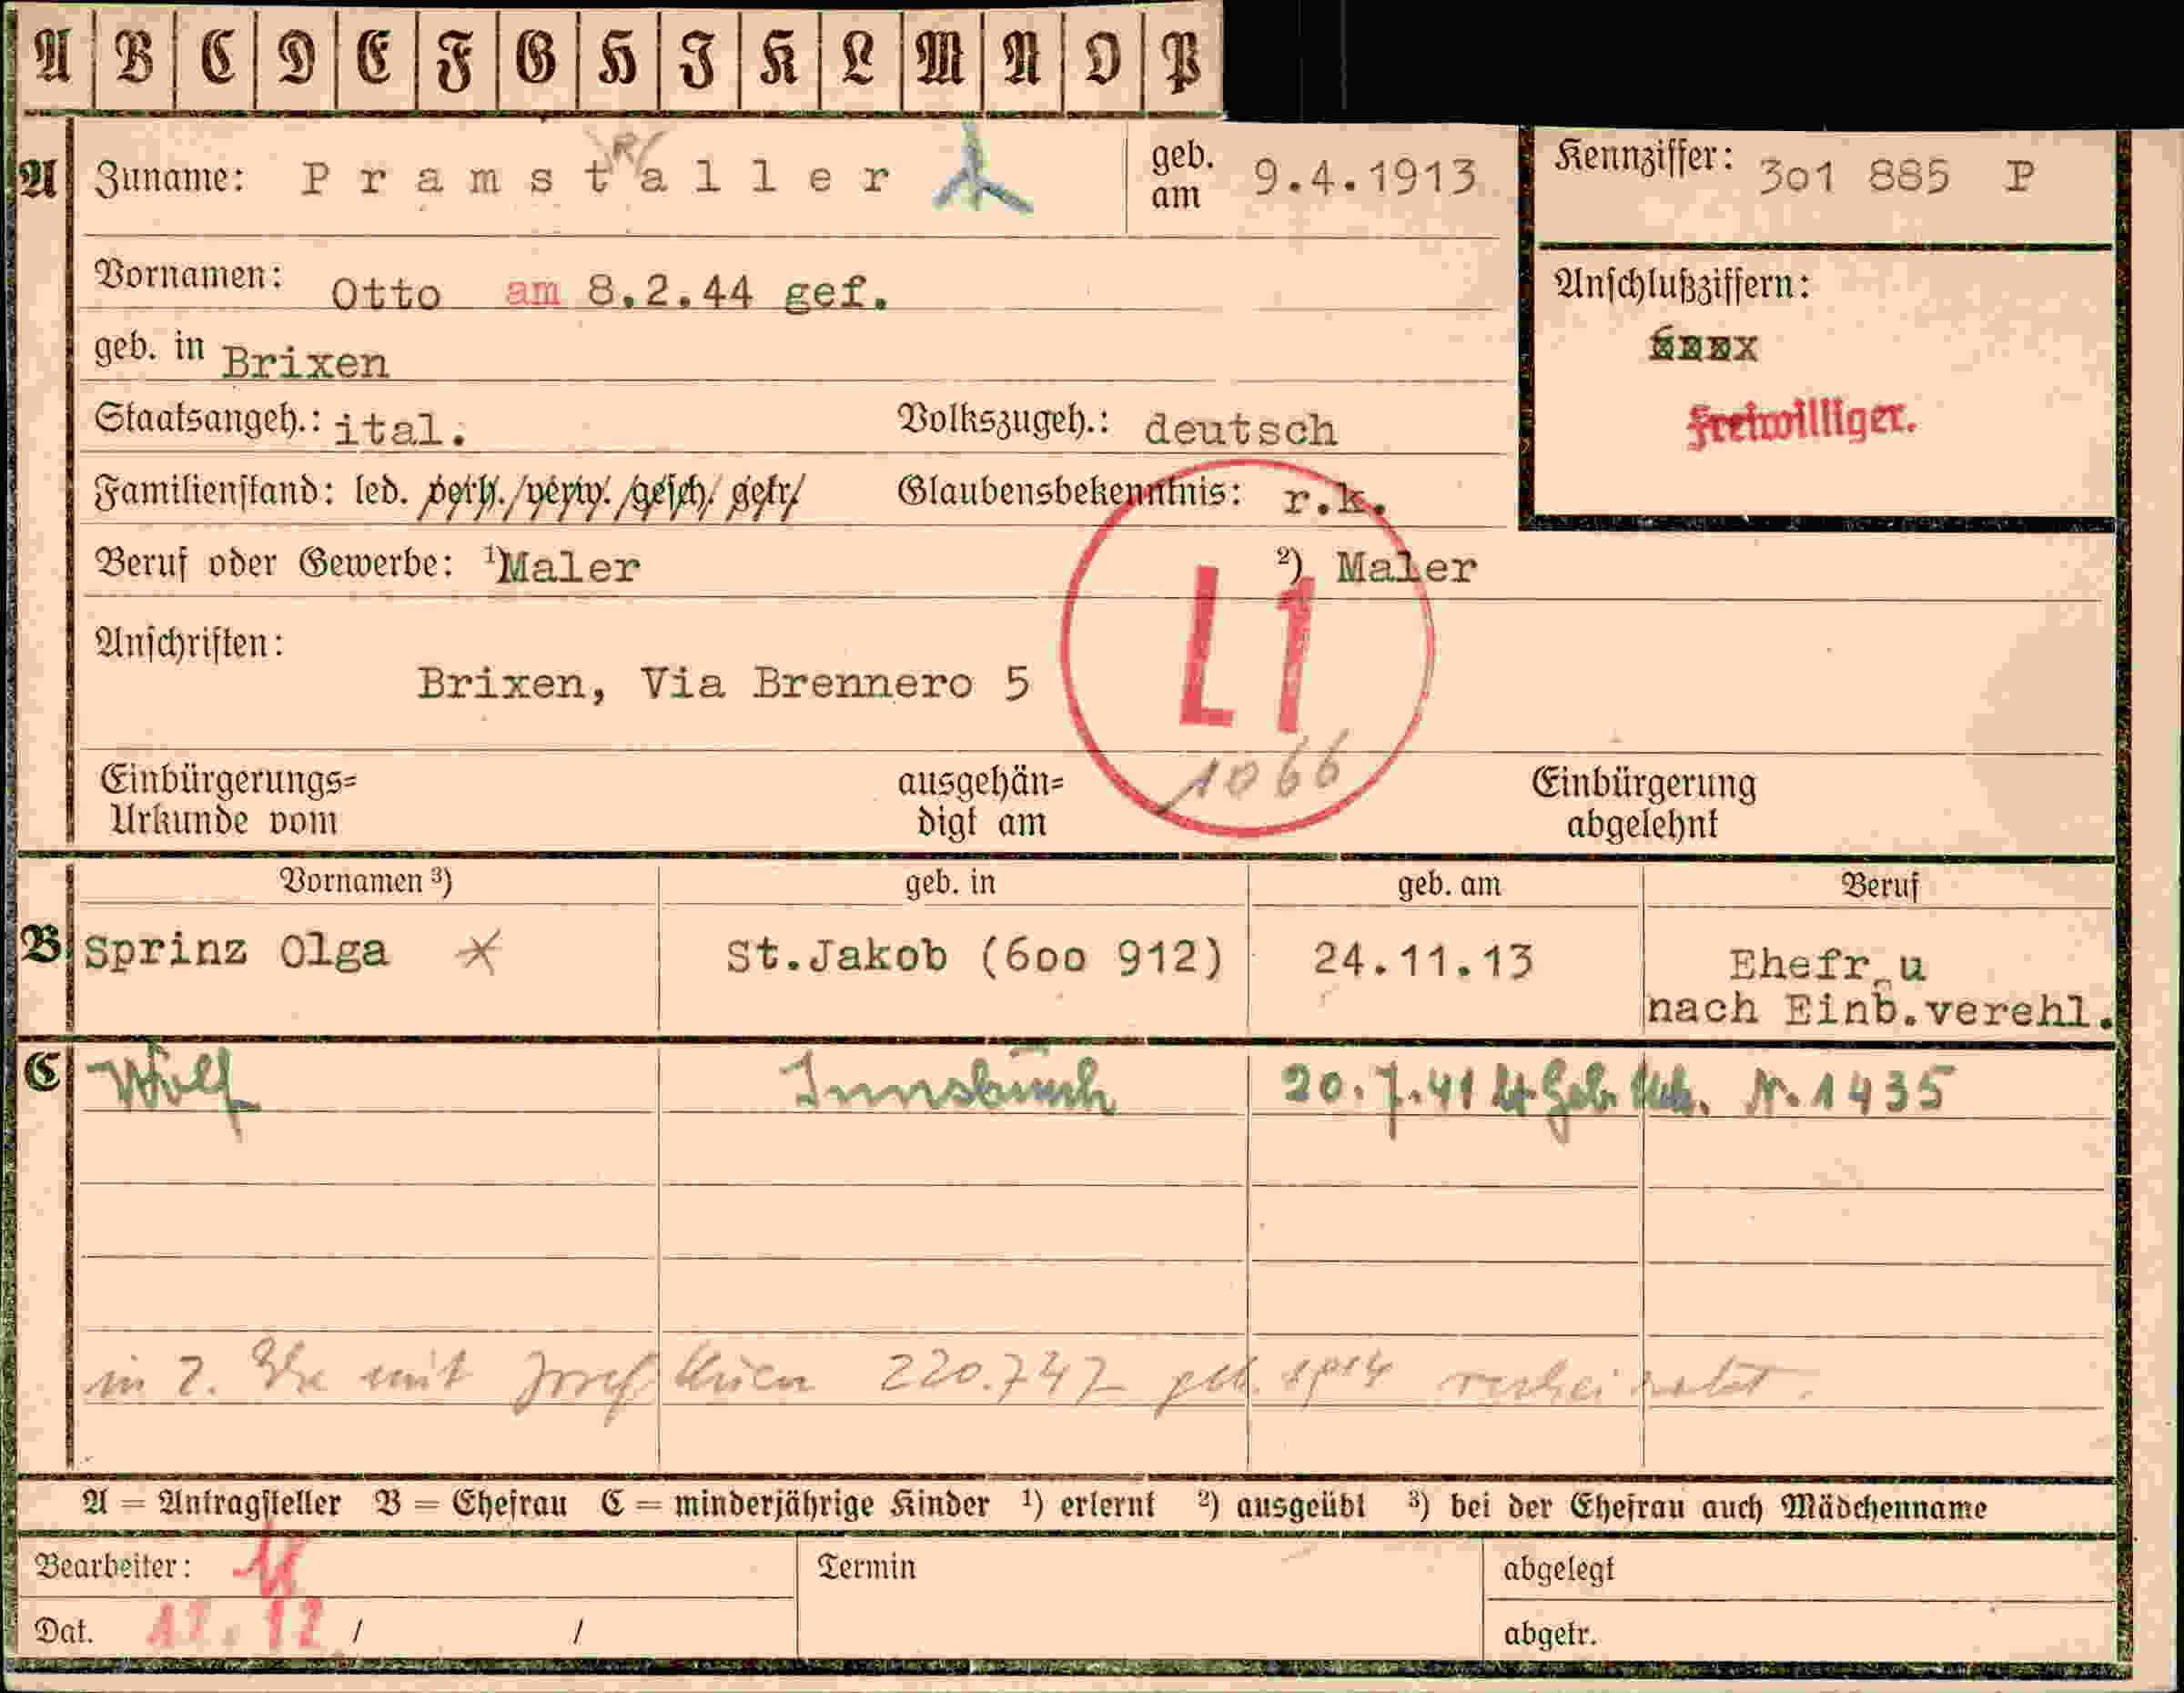 A B C D E F G H I K L M N O P
A Zuname: Pramstaller geb. am 9.4.1913 Kennziffer: 3o1 885 P
R
Vornamen: Otto am 8.2.44 gef. Anschlußziffern:
geb. in Brixen
Freiwilliger.
Staatsangeh.: ital. Volkszugeh.: deutsch
Familienstand: led. verh. verw. gesch. getr. Glaubensbekenntnis: r.k.
Beruf oder Gewerbe: ¹)Maler ²) Maler
L1
Anschriften:
Brixen, Via Brennero 5
1066
Einbürgerungs= ausgehän= Einbürgerung
Urkunde vom digt am abgelehnt
Vornamen ³) geb. in geb. am Beruf
B Sprinz Olga St.Jakob (6oo 912) 24.11.13 Ehefr u
nach Einb.verehl.
C Wolf Innsbruck 20.7.41 lt Geb. Urk. N. 1435
in 2. Ehe mit Josef 220.747 geb. 1914 verheiratet.
A = Antragsteller B = Ehefrau C = minderjährige Kinder ¹) erlernt ²) ausgeübt ³) bei der Ehefrau auch Mädchenname
Bearbeiter: Termin abgelegt
Dat. 12. 12 / / abgetr.